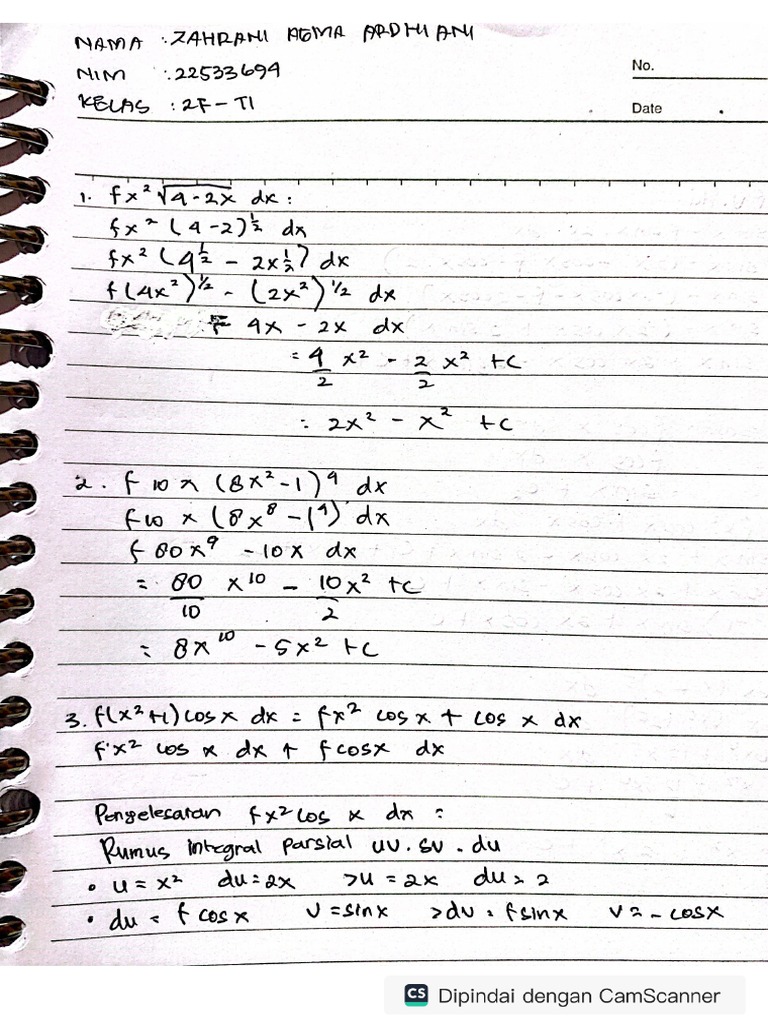 NAMA : ZAHRANI AGMA ARDHIANI
NIM : 22533694
No.
KELAS : 2F - TI
Date
1. ∫x² √4-2x dx :
∫x² (4-2)^½ dx
∫x² (4^½ - 2x^½) dx
∫(4x²)^1/2 - (2x²)^1/2 dx
∫ 4x - 2x dx
= 4/2 x² - 2/2 x² + C
= 2x² - x² + C
2. ∫ 10 x (8x²-1)⁴ dx
∫10 x (8x⁸ - 1⁴) dx
∫ 80x⁹ - 10x dx
= 80/10 x¹⁰ - 10x²/2 + C
= 8x¹⁰ - 5x² + C
3. ∫(x²+1) cos x dx = ∫x² cos x + cos x dx
∫x² cos x dx + ∫cosx dx
Penyelesaian ∫x² cos x dx =
Rumus integral parsial uv. sv . du
• u = x² du = 2x >u = 2x du = 2
• du = ∫ cos x v = sin x >dv = ∫sinx v = - cosx
CS Dipindai dengan CamScanner